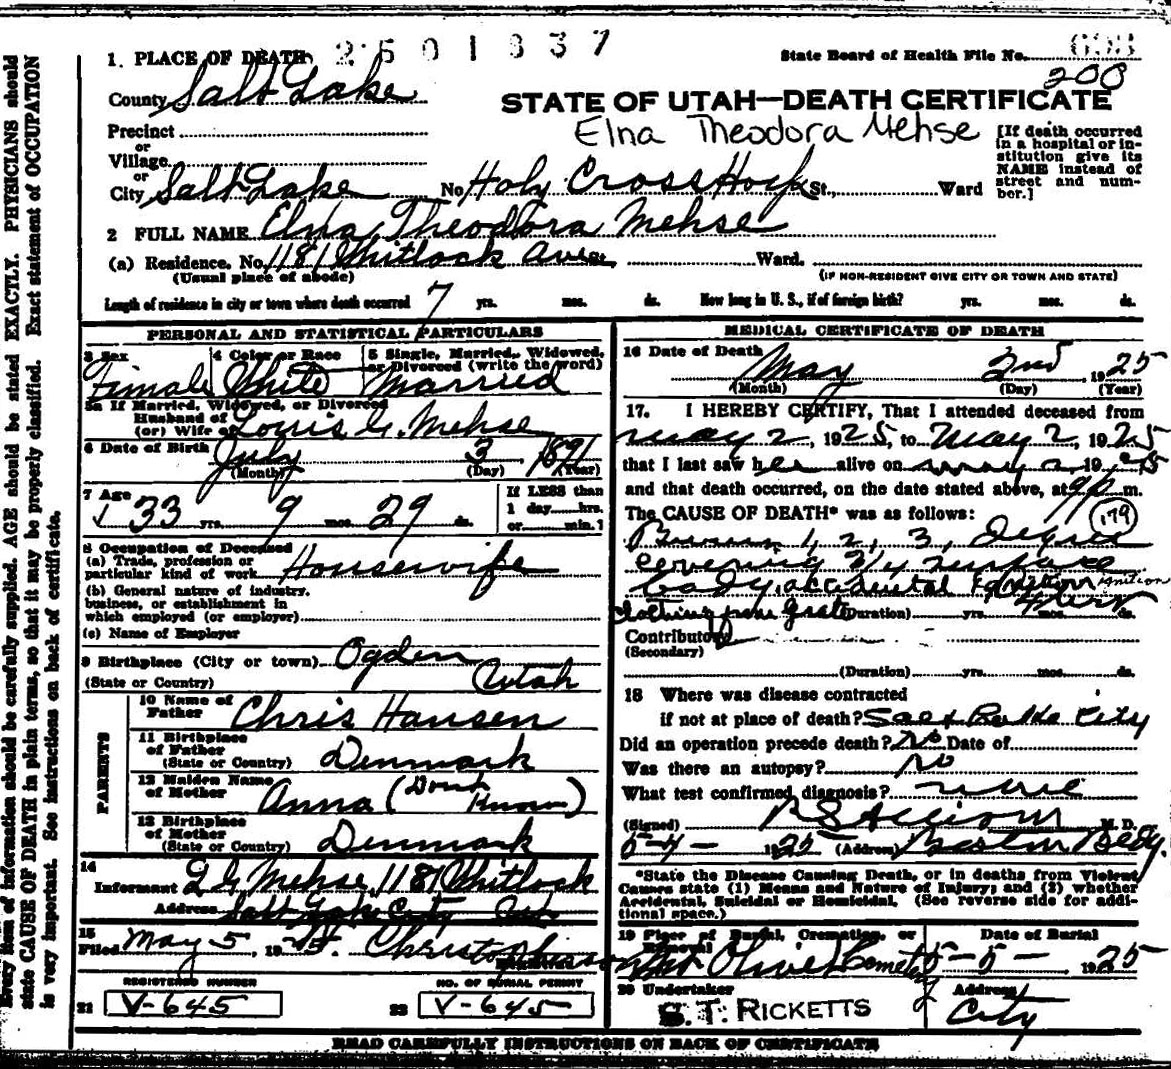 2501837
1 PLACE OF DEATH
State Board of Health File No. 693
200
County Salt Lake
STATE OF UTAH—DEATH CERTIFICATE
Elna Theodora Mehse
Precinct
or
Village
or
City Salt Lake No Holy Cross Hosp St., Ward
[If death occurred in a hospital or institution give its NAME instead of street and number.]
2 FULL NAME Elna Theodora Mehse
(a) Residence. No. 1181 Whitlock Ave Ward.
(Usual place of abode) (IF NON-RESIDENT GIVE CITY OR TOWN AND STATE)
Length of residence in city or town where death occurred 7 yrs. mos. ds. How long in U. S., if of foreign birth? yrs. mos. ds.
PERSONAL AND STATISTICAL PARTICULARS
3 Sex 4 Color or Race 5 Single, Married, Widowed, or Divorced (write the word)
Female White Married
5a If Married, Widowed, or Divorced
Husband of
(or) Wife of Louis G. Mehse
6 Date of Birth July 3 1891
(Month) (Day) (Year)
7 Age 33 yrs. 9 mos. 29 ds.
If LESS than
1 day hrs.
or min.]
8 Occupation of Deceased
(a) Trade, profession or
particular kind of work Housewife
(b) General nature of industry,
business, or establishment in
which employed (or employer)
(c) Name of Employer
9 Birthplace (City or town) Ogden
(State or Country) Utah
PARENTS
10 Name of
Father Chris Hansen
11 Birthplace
of Father
(State or Country) Denmark
12 Maiden Name
of Mother Anna (Dont Know)
13 Birthplace
of Mother
(State or Country) Denmark
14
Informant L G Mehse, 1181 Whitlock
Address Salt Lake City Ut
15
Filed May 5, 1925.
REGISTRAR
REGISTERED NUMBER NO. OF BURIAL PERMIT
21 V-645 22 V-645
MEDICAL CERTIFICATE OF DEATH
16 Date of Death May 2nd, 1925
(Month) (Day) (Year)
17. I HEREBY CERTIFY, That I attended deceased from
May 2, 1925, to May 2, 1925
that I last saw her alive on May 2, 1925
and that death occurred, on the date stated above, at 9 p m.
The CAUSE OF DEATH* was as follows:
179
Burns 1, 2, 3, Degree
covering 3/4 surface
body, accidental ignition
clothing from grate (Duration) yrs. mos. ds.
Contributory
(Secondary)
(Duration) yrs. mos. ds.
18 Where was disease contracted
if not at place of death? Salt Lake City
Did an operation precede death? No Date of
Was there an autopsy? No
What test confirmed diagnosis? none
(Signed) M. D.
5-4- 1925 (Address) Boston Bldg.
*State the Disease Causing Death, or in deaths from Violent
Causes state (1) Means and Nature of Injury; and (2) whether
Accidental, Suicidal or Homicidal. (See reverse side for addi-
tional space.)
19 Place of Burial, Cremation, or Removal Date of Burial
Mt Olivet Cemetery 5-5- 1925
20 Undertaker Address
S. T. RICKETTS City
READ CAREFULLY INSTRUCTIONS ON BACK OF CERTIFICATE
Every item of information should be carefully supplied. AGE should be stated EXACTLY. PHYSICIANS should
state CAUSE OF DEATH in plain terms, so that it may be properly classified. Exact statement of OCCUPATION
is very important. See instructions on back of certificate.